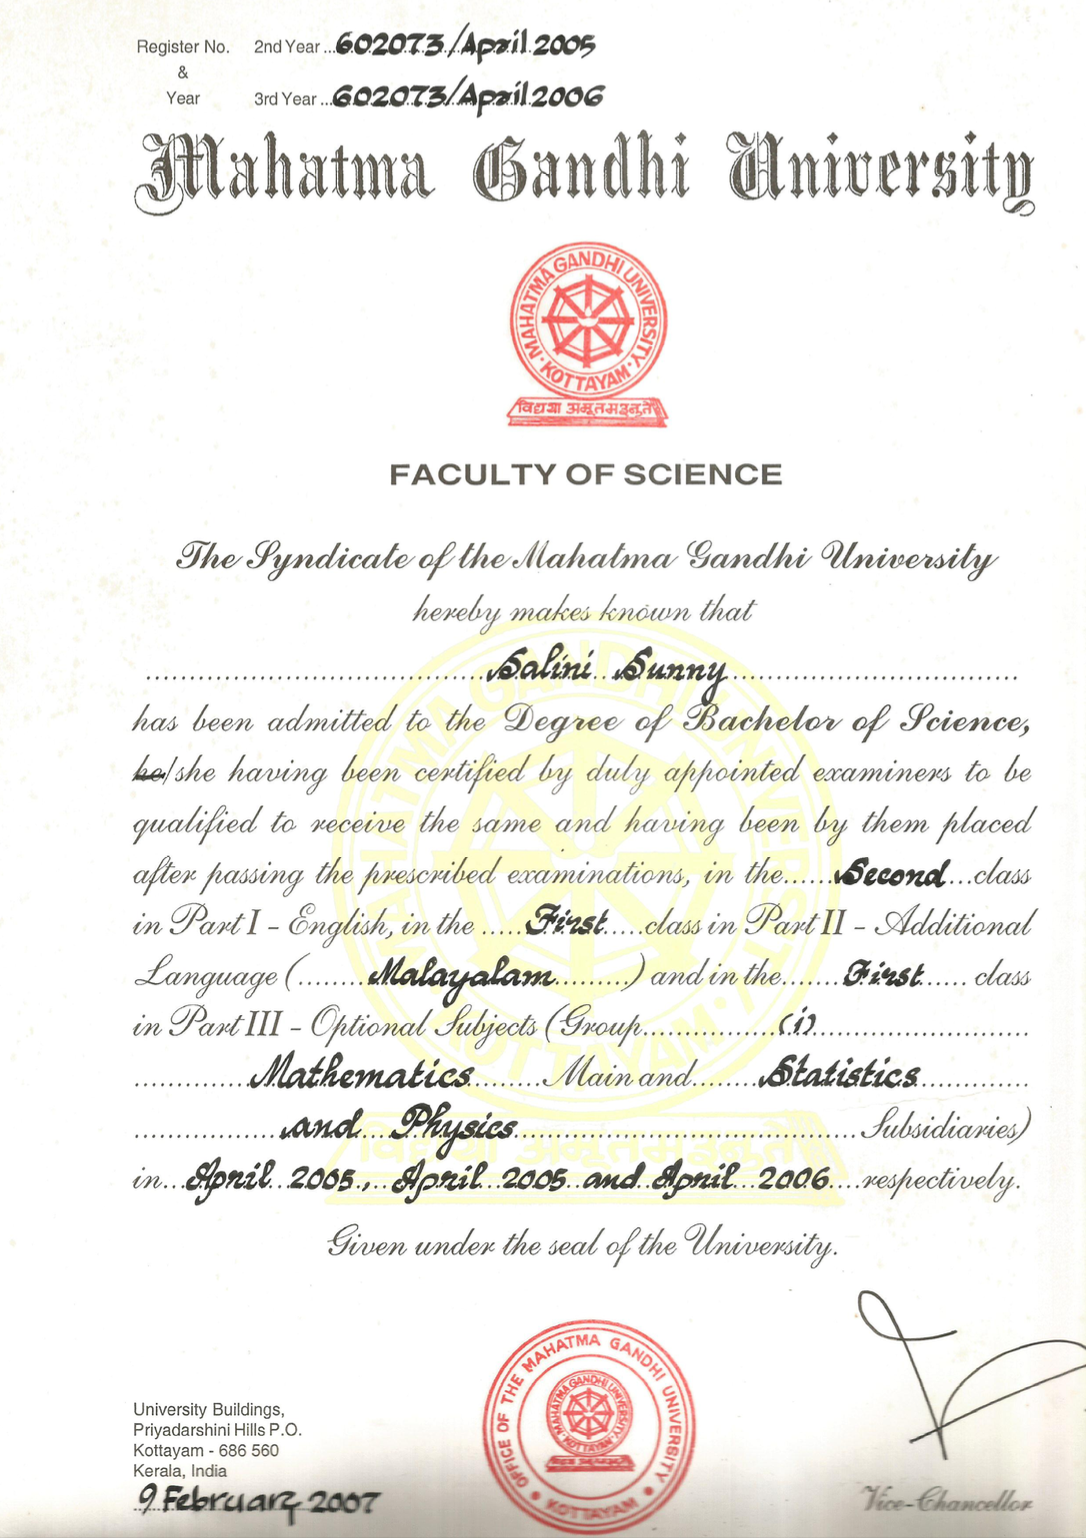 Register No. 2nd Year ... 602073/April 2005
&
Year 3rd Year ... 602073/April 2006
Mahatma Gandhi University
MAHATMA GANDHI UNIVERSITY · KOTTAYAM ·
विद्यया अमृतमश्नुते
FACULTY OF SCIENCE
The Syndicate of the Mahatma Gandhi University
hereby makes known that
Salini Sunny
has been admitted to the Degree of Bachelor of Science,
he/she having been certified by duly appointed examiners to be
qualified to receive the same and having been by them placed
after passing the prescribed examinations, in the......Second...class
in Part I - English, in the .....First.....class in Part II - Additional
Language (........Malayalam.........) and in the.......First...... class
in Part III - Optional Subjects (Group..............(i)
Mathematics........Main and.......Statistics
and Physics Subsidiaries)
in...April 2005., April 2005 and April 2006....respectively.
Given under the seal of the University.
OFFICE OF THE MAHATMA GANDHI UNIVERSITY
KOTTAYAM
MAHATMA GANDHI UNIVERSITY · KOTTAYAM ·
University Buildings,
Priyadarshini Hills P.O.
Kottayam - 686 560
Kerala, India
9 February 2007
Vice-Chancellor